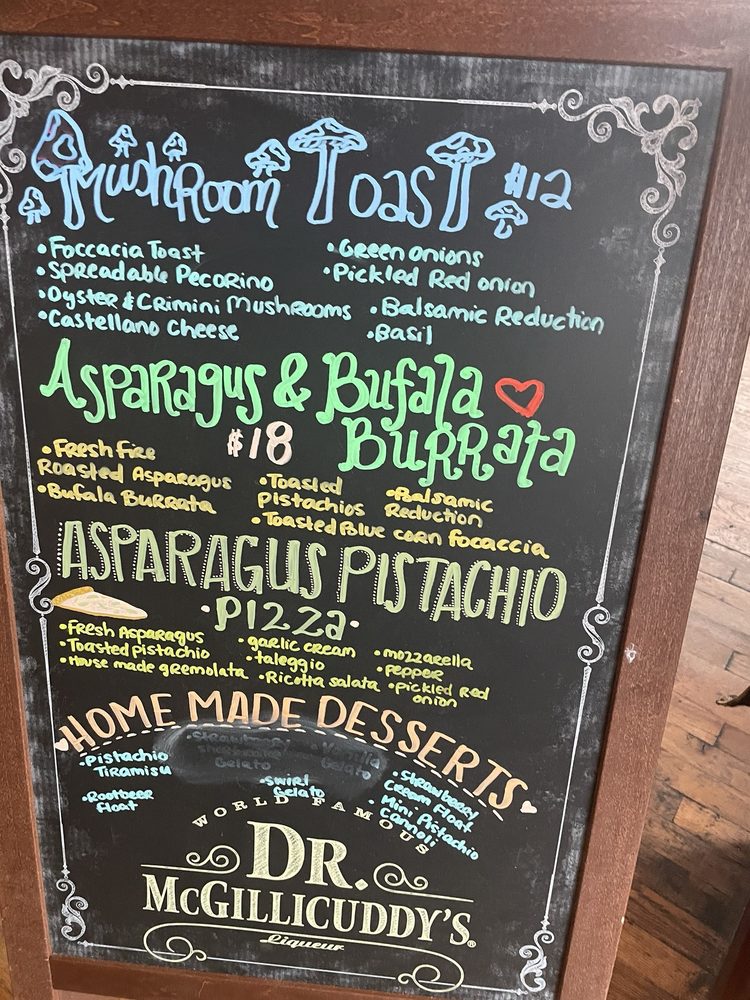 Mushroom Toast $12
•Foccacia Toast
•Spreadable Pecorino
•Oyster & Crimini Mushrooms
•Castellano Cheese
•Green onions
•Pickled Red onion
•Balsamic Reduction
•Basil
Asparagus & Bufala
$18 Burrata
•Fresh Fire
Roasted Asparagus
•Bufala Burrata
•Toasted
pistachios
•Balsamic
Reduction
•Toasted Blue corn focaccia
ASPARAGUS PISTACHIO
•PIZZa•
•Fresh Asparagus
•Toasted pistachio
•House made gremolata
•garlic cream
•taleggio
•Ricotta salata
•mozzarella
•pepper
•pickled red
onion
HOME MADE DESSERTS
•Pistachio
Tiramisu
•Rootbeer
Float
Gelato
•Vanilla
Gelato
•Swirl
Gelato
•Strawberry
Cream Float
•Mini Pistachio
Cannoli
WORLD FAMOUS
DR.
McGILLICUDDY'S®
Liqueur